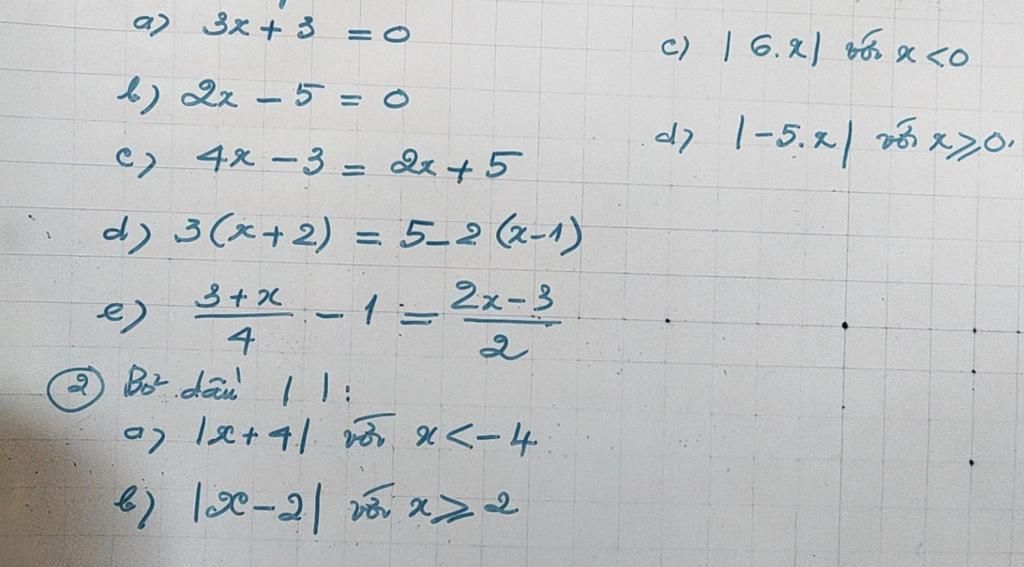 a) 3x + 3 = 0
b) 2x - 5 = 0
c) 4x - 3 = 2x + 5
d) 3(x+2) = 5 - 2(x-1)
e) \frac{3+x}{4} - 1 = \frac{2x-3}{2}
② Bỏ dấu | | :
a) |x+4| với x < -4
b) |x-2| với x ⩾ 2
c) |6.x| với x < 0
d) |-5.x| với x ⩾ 0.